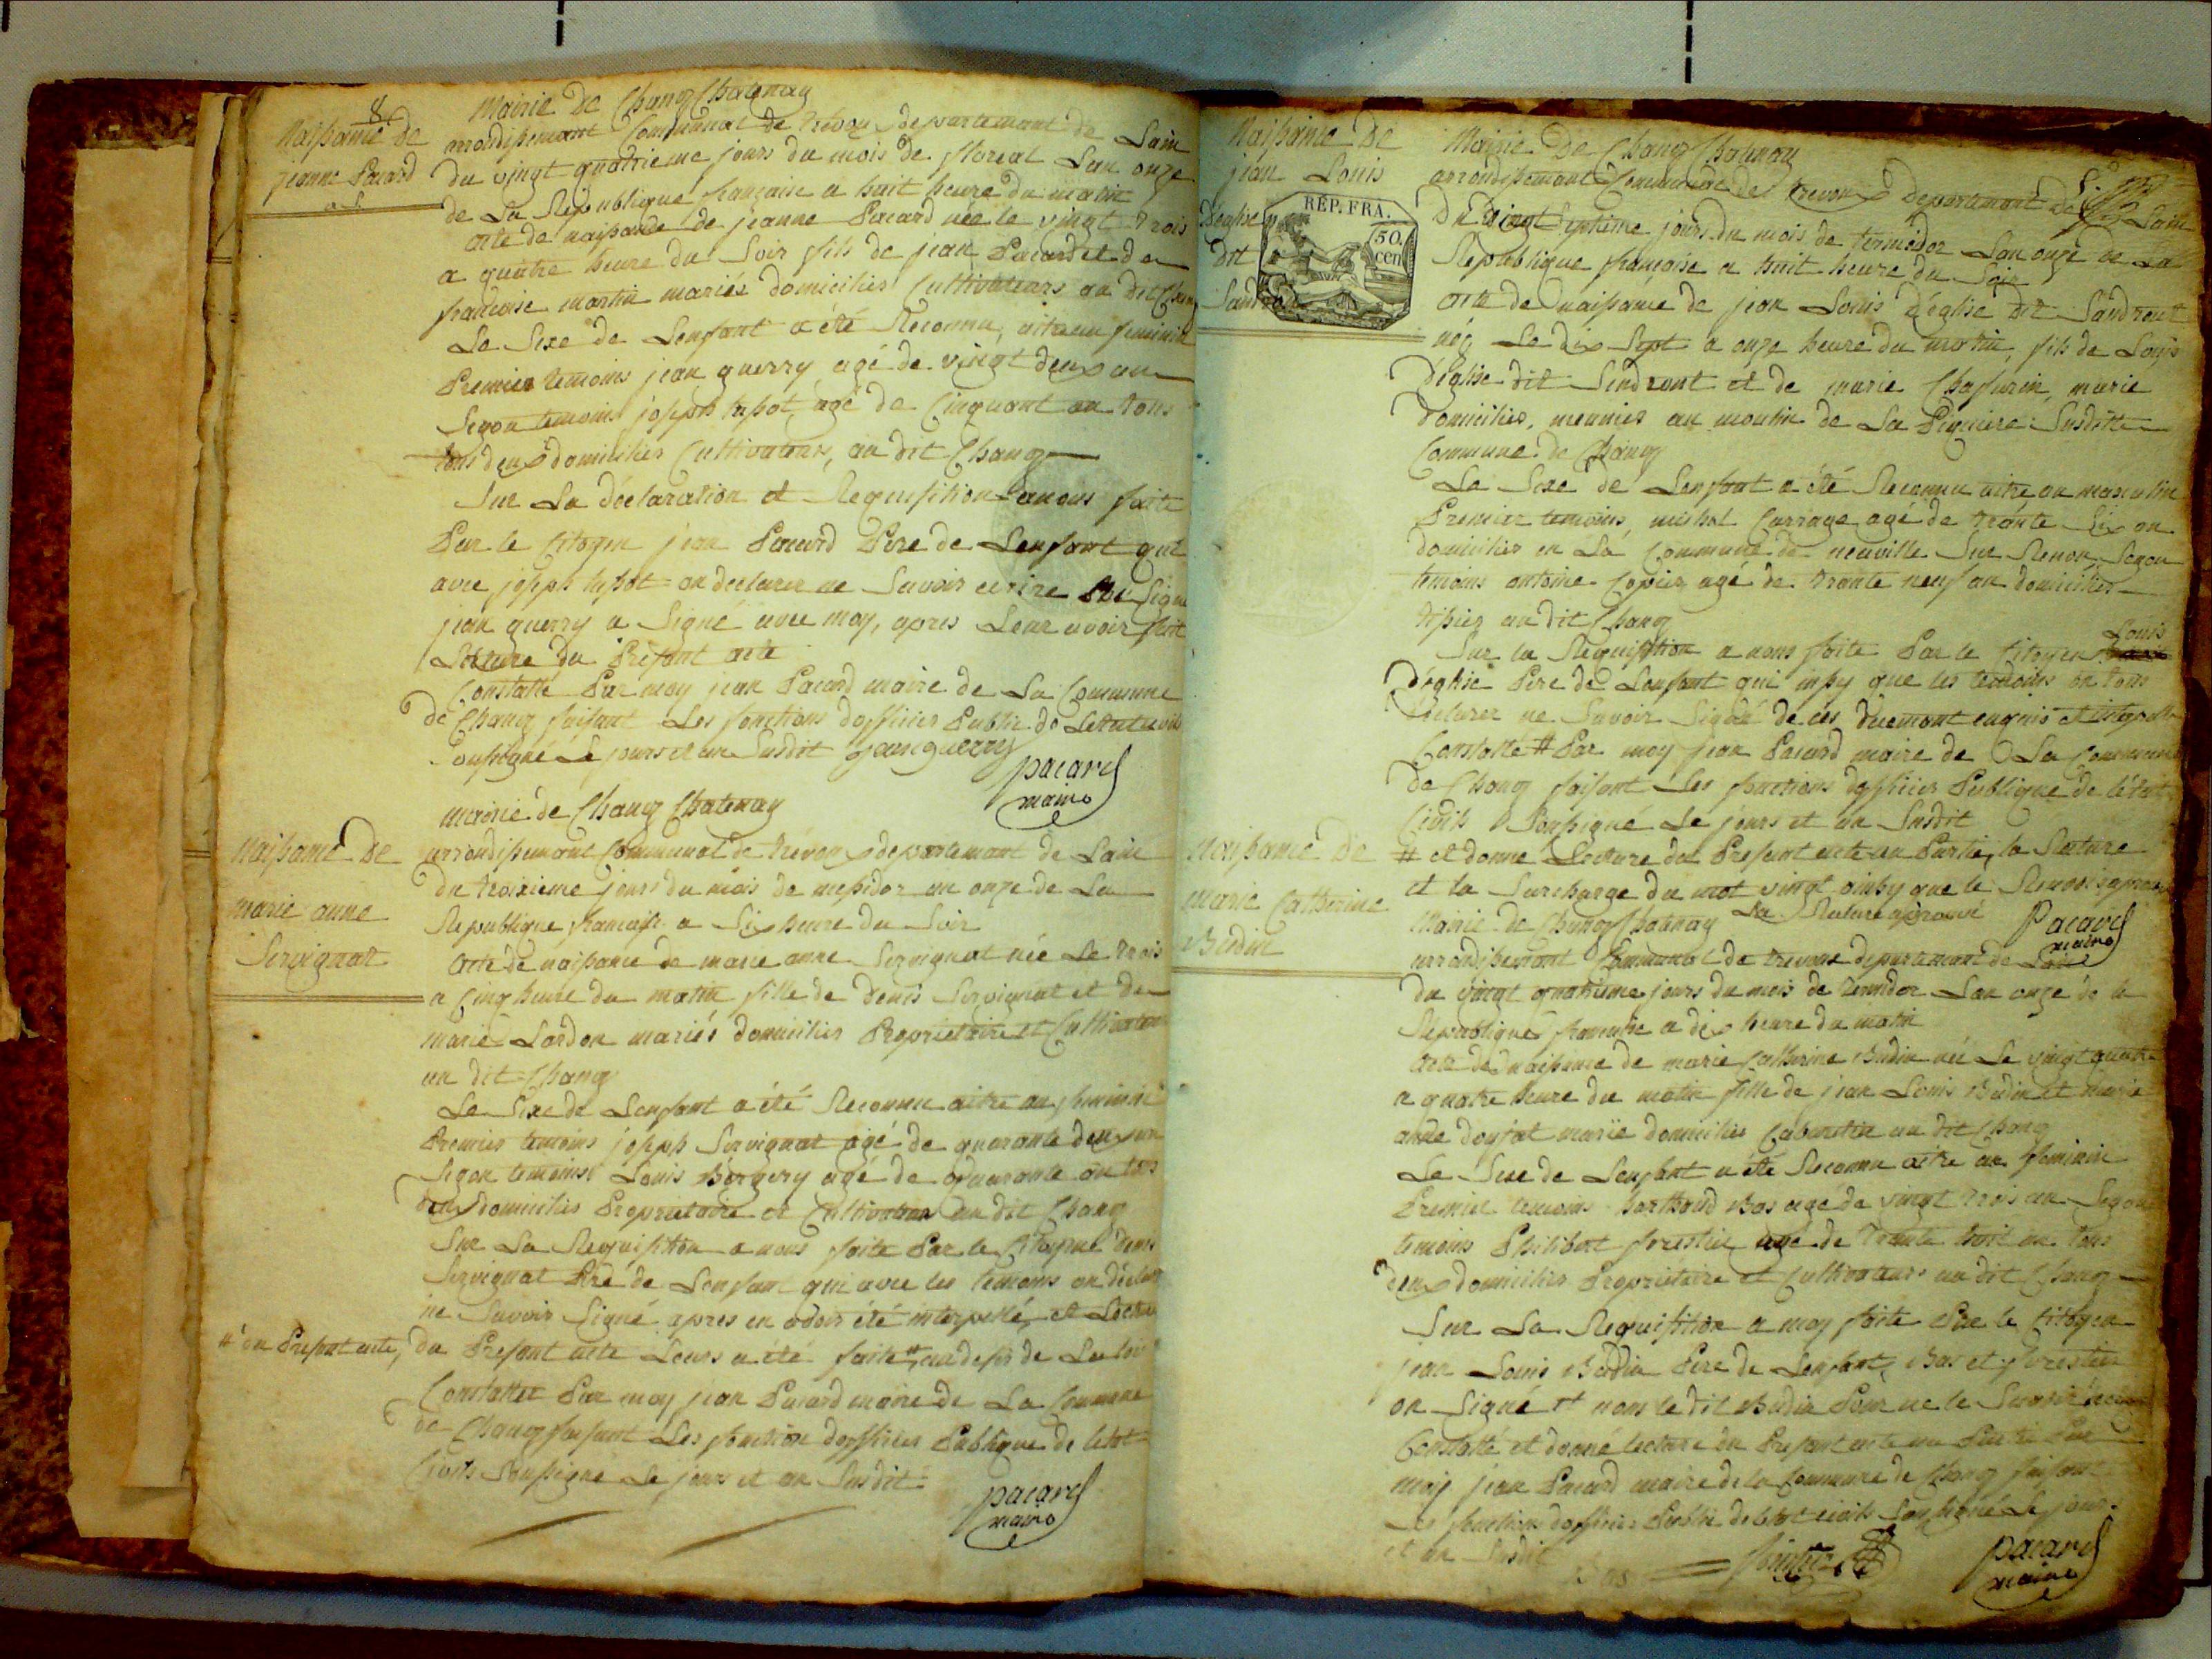 8
Naissance de
jeanne Pacard
Mairie de Chanoz Chatenay
arrondissemant Communal de trévou departemant de Lain
du vingt quatrieme jours du mois de floréal Lan onze
de La Republique française a huit heure du matin
acte de naissance de jeanne Pacard née le vingt trois
a quatre heure du Soir fils de jean Pacard et de
francoise martin mariés domiciliés Cultivateurs au dit Chanoz
Le Sexe de Lenfant a été Reconnu aitre au feminin
Premier temoins jean guerry agé de vingt deux an
Segon temoins joseph tissot agé de Cinquant an tous
tous deux domiciliés Cultivateurs, au dit Chanoz
Sur La déclaration et Requisition a nous faite
Par le Citoyen jean Pacard Pere de Lenfant qui
avec joseph tissot on declarer ne Savoir ecrire
jean guerry a Signé avec moy, apres Leur avoir fait
Lecture du Present acte
Constatté Par moy jean Pacard maire de La Commune
de Chanoz faisant Les fonctions dofficier Public de Letat civil
Soussigné Le jours et an Susdit jean guerry
pacard
maire
Naissance De
marie anne
Servignat
mairie de Chanoz Chatenay
arrondissemant Communal de trévoux departemant de Lain
du troixieme jours du mois de messidor an onze de La
Republique francaise a Six heure du Soir
Acte de naissance de marie anne Servignat née Le trois
a Cinq heure du matin fille de Denis Servignat et de
marie Lardon mariés domiciliés Proprietaire et Cultivateur
au dit Chanoz
Le Sexe de Lenfant a été Reconnu aitre au feminin
Premier temoins joseph Servignat agé de quarante deux an
Segon temoins Louis Borgery agé de quarante an tous
deux domiciliés Proprietaire et Cultivateur au dit Chanoz
Sur La Requisition a nous faite Par le Citoyens Denis
Servignat Pere de Lenfant qui avec les temoins on déclaré
ne Savoir Signé apres en avoir été interpellé, et Lecture
# du Present acte,
du Present acte Leurs a été faite # au desir de La loi
Constattee Par moy jean Pacard maire de La Commune
de Chanoz faisant Les fonction dofficier Publique de letat
Civils Soussigné Le jour et an Susdit
pacard
maire
Naissance De
jean Louis
déglise
dit
Sandront
REP. FRA.
50.
cen
Mairie De Chanoz Chatenay
arrondissemant Communal de trevoux Departemant de Lain
Du vingt Septieme jours du mois de termidor Lan onze de La
Republique française a huit heure du Soir
acte de naissance de jean Louis déglise dit Sandront
né Le dix Sept a onze heure du matin, fils de Louis
déglise dit Sandront et de marie Chassurin, marie
domicilies, meunier au moulin de La Susditte
Commune de Chanoz
Le Sexe de Lenfant a été Reconnu aitre au masculin
Premier temoins, mishel Carriage agé de trante Six an
domicilier en La Commune de neuville Sur Renon Segon
temoins antoine Copier agé de trante neuf an domicilier
tissier au dit Chanoz
Sur la Requisition a nous faite Par le Citoyen Louis
déglise Pere de Lenfant qui insy que les temoins on tous
declarer ne Savoir Signé de ces duemont enquis et interpellé
Constatté # Par moy jean Pacard maire de La Commune
de Chanoz faisant Les fonctions dofficier Publique de létat
Civils Soussigné Le jours et an Susdit
# et donne Lecture du Present acte au Partie, la Rature
et la Surcharge du mot vingt ainsy que le Renvois aprouvé
La Rature aprouvé
Pacard
maire
Naissance De
Marie Catherine
Budin
Mairie de Chanoz Chatenay
arrondissemant Communal de trevoux departemant de Lain
du vingt quatrieme jours du mois de termidor Lan onze de la
Republique francaise a dix heure du matin
Acte de naissance de marie Catherine Budin née Le vingt quatre
a quatre heure du matin fille de jean Louis Budin et marie
anne doujat marié domicilies Cabaretier au dit Chanoz
Le Sexe de Lenfant a été Reconnu aitre au feminin
Premier temoins Bas agé de vingt trois an Segon
temoins Philibert forestier age de trante huit an tous
deux domicilies Proprietaire et Cultivateurs au dit Chanoz
Sur La Requisition a moy faite Par le Citoyen
jean Louis Budin Pere de Lenfant, Bas et forestier
on Signé et nons le dit Budin Pour ne le Savoir
Constatté et donné lecture du Present acte au Partie Par
moy jean Pacard maire de la Commune de Chanoz faisant
Les fonctions dofficier Public de letat civils Soussigné Le jour
et an Susdit
Bas
forestier
pacard
maire